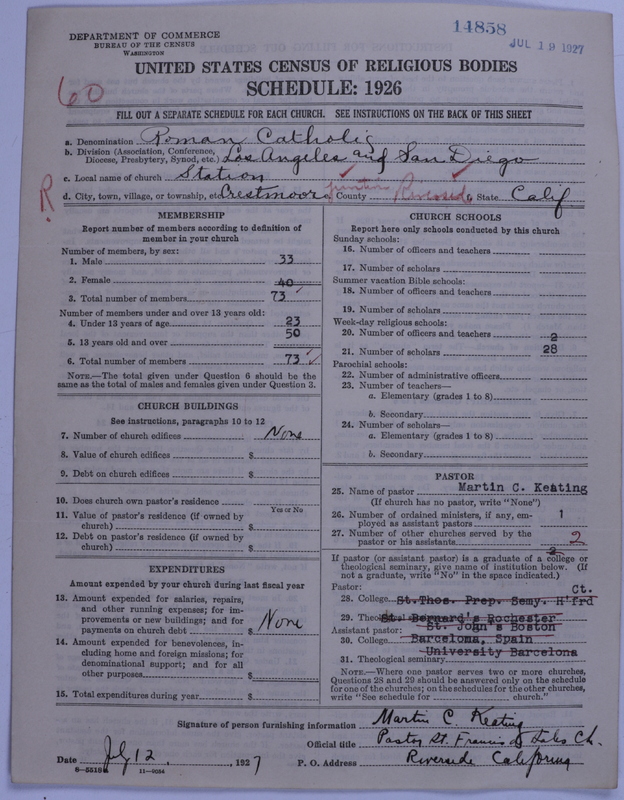 14858
JUL 19 1927
DEPARTMENT OF COMMERCE
BUREAU OF THE CENSUS
WASHINGTON
UNITED STATES CENSUS OF RELIGIOUS BODIES
SCHEDULE: 1926
60
FILL OUT A SEPARATE SCHEDULE FOR EACH CHURCH. SEE INSTRUCTIONS ON THE BACK OF THIS SHEET
a. Denomination Roman Catholic
b. Division (Association, Conference, Diocese, Presbytery, Synod, etc.) Los Angeles and San Diego
c. Local name of church Station
R.
d. City, town, village, or township, etc. Crestmoor, County Riverside, State Calif
MEMBERSHIP
Report number of members according to definition of
member in your church
Number of members, by sex:
1. Male 33
2. Female 40
3. Total number of members 73
Number of members under and over 13 years old:
4. Under 13 years of age 23
5. 13 years old and over 50
6. Total number of members 73
NOTE.—The total given under Question 6 should be the
same as the total of males and females given under Question 3.
CHURCH BUILDINGS
See instructions, paragraphs 10 to 12
7. Number of church edifices None
8. Value of church edifices $
9. Debt on church edifices $
10. Does church own pastor's residence
Yes or No
11. Value of pastor's residence (if owned by
church) $
12. Debt on pastor's residence (if owned by
church) $
EXPENDITURES
Amount expended by your church during last fiscal year
13. Amount expended for salaries, repairs,
and other running expenses; for im-
provements or new buildings; and for
payments on church debt $ None
14. Amount expended for benevolences, in-
cluding home and foreign missions; for
denominational support; and for all
other purposes $
15. Total expenditures during year $
CHURCH SCHOOLS
Report here only schools conducted by this church
Sunday schools:
16. Number of officers and teachers
17. Number of scholars
Summer vacation Bible schools:
18. Number of officers and teachers
19. Number of scholars
Week-day religious schools:
20. Number of officers and teachers 2
21. Number of scholars 28
Parochial schools:
22. Number of administrative officers
23. Number of teachers—
a. Elementary (grades 1 to 8)
b. Secondary
24. Number of scholars—
a. Elementary (grades 1 to 8)
b. Secondary
PASTOR
25. Name of pastor Martin C. Keating
(If church has no pastor, write "None")
26. Number of ordained ministers, if any, em-
ployed as assistant pastors 1
27. Number of other churches served by the
pastor or his assistants 2
2
If pastor (or assistant pastor) is a graduate of a college or
theological seminary, give name of institution below. (If
not a graduate, write "No" in the space indicated.)
Pastor: Ct.
28. College St.Thos. Prep. Semy. H'frd
29. Theological St. Bernard's Rochester
Assistant pastor: St. John's Boston
30. College Barcelona, Spain
University Barcelona
31. Theological seminary
NOTE.—Where one pastor serves two or more churches,
Questions 28 and 29 should be answered only on the schedule
for one of the churches; on the schedules for the other churches,
write "See schedule for church."
Signature of person furnishing information Martin C. Keating
Official title Pastor St. Francis de Sales Ch.
Date July 12, 1927 P. O. Address Riverside California
8-5518a 11-9054